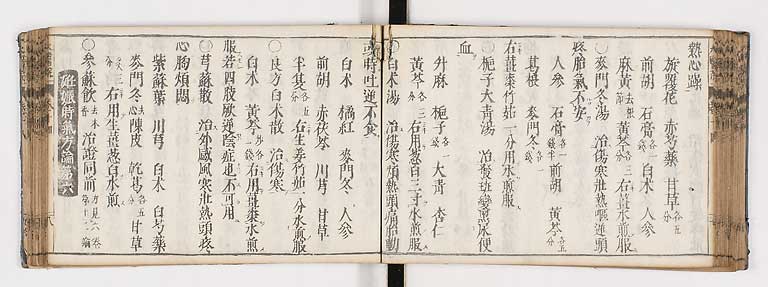 熱心躁
旋覆花 赤芍藥 甘草各五分
前胡 石膏各一錢 白朮 人參
麻黄去根節 黄芩各三分 右薑水煎服
○麥門冬湯 治傷寒壯熱嘔逆頭
疼胎氣不安
人參 石膏各一錢半 前胡 黄芩各五分
葛根 麥門冬各一錢
右薑棗竹茹一分用水煎服
○梔子大青湯 治發斑變爲尿便
血
升麻 梔子各一錢 大青 杏仁
黄芩各三分 右用葱白三寸水煎服
○白朮湯 治傷寒煩熱頭痛胎動
或時吐逆不食
白朮 橘紅 麥門冬 人參
前胡 赤茯苓 川芎 甘草
半夏各五分 右生姜竹茹一分水煎服
○良方白朮散 治傷寒
白朮 黄芩各等分 右用薑棗水煎
服若四肢厥逆陰症也不可用
○芎蘇散 治外感風寒壯熱頭疼
心胸煩悶
紫蘇葉 川芎 白朮 白芍藥
麥門冬去心 陳皮 乾葛各五分 甘草
三分 右用生薑葱白水煎
○參蘇飲去木香 治證同前
妊娠時氣方論第六